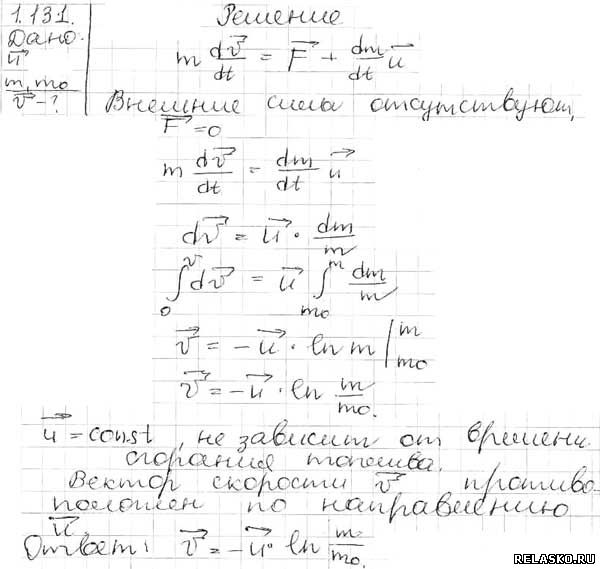 1.131.
Дано:
u⃗
m, m₀
v⃗ - ?
Решение
m dv⃗/dt = F⃗ + dm/dt u⃗
Внешние силы отсутствуют,
F⃗ = 0
m dv⃗/dt = dm/dt u⃗
dv⃗ = u⃗ · dm/m
∫₀ᵛ dv⃗ = u⃗ ∫ₘ₀ᵐ dm/m
v⃗ = -u⃗ · ln m |ₘ₀ᵐ
v⃗ = -u⃗ · ln m/m₀.
u⃗ = const, не зависит от времени
сгорания топлива.
Вектор скорости v⃗ противо
положен по направлению
u⃗.
Ответ: v⃗ = -u⃗ · ln m/m₀.
RELASKO.RU